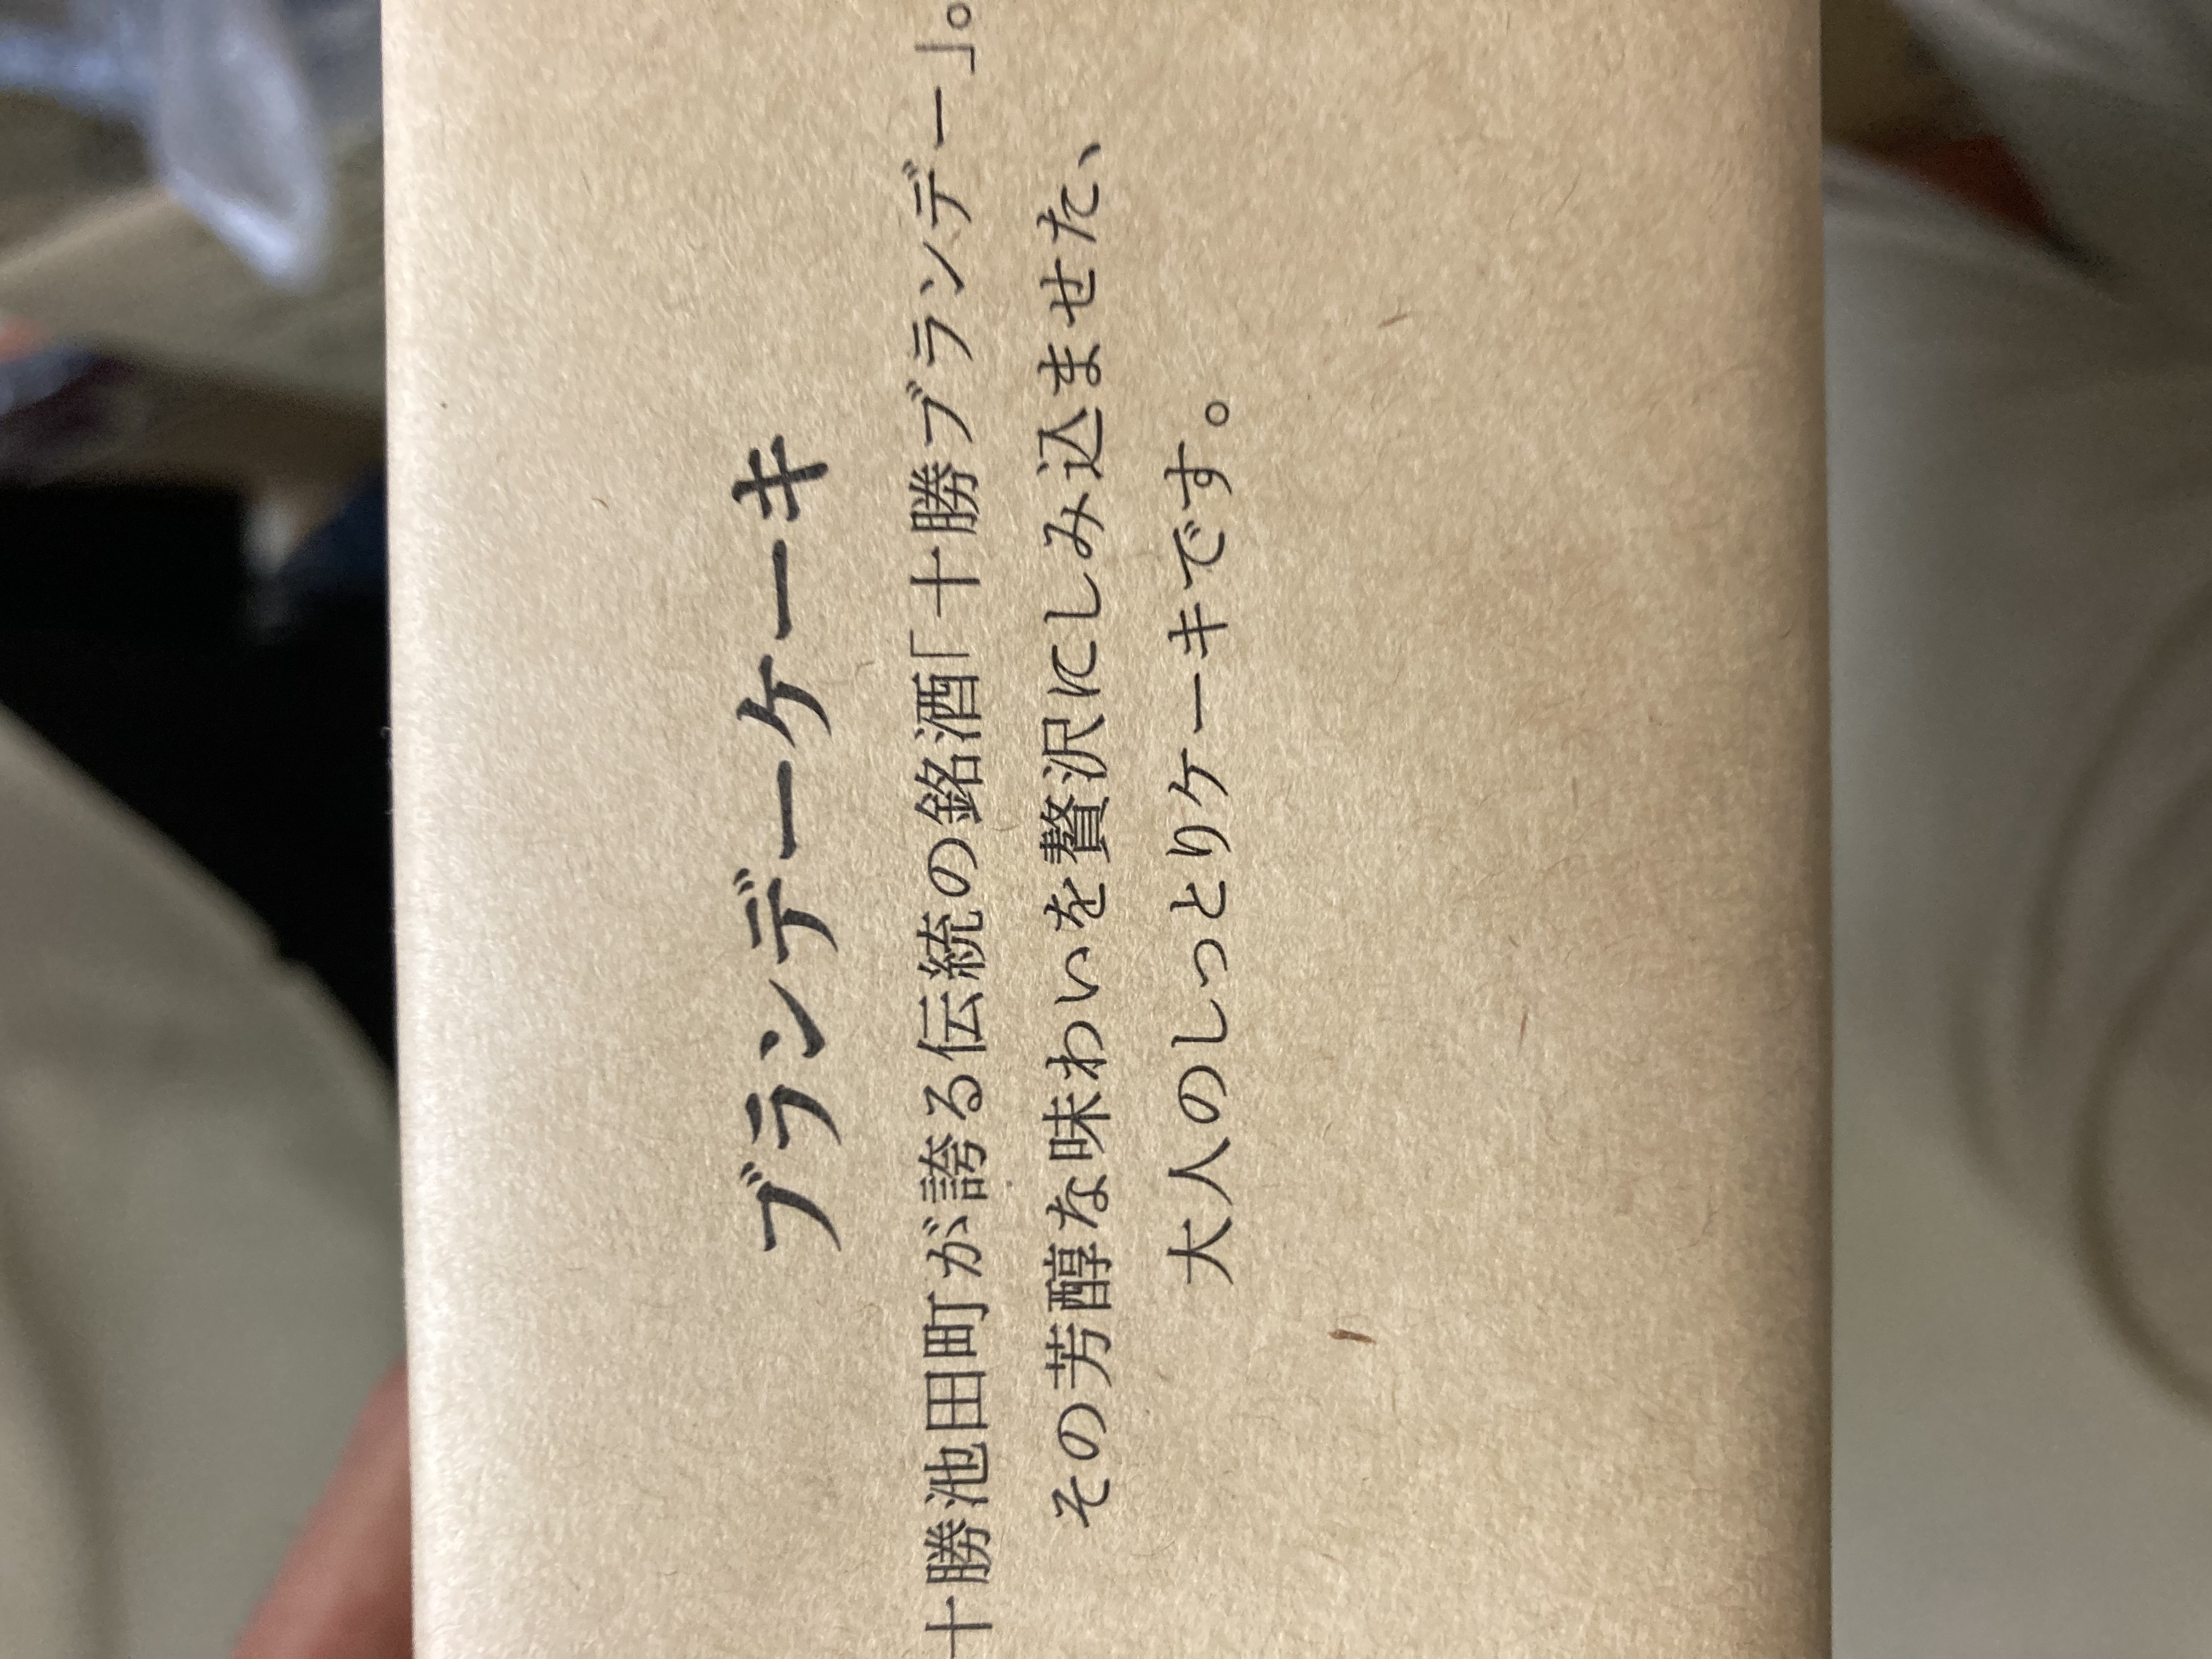 ブランデーケーキ
十勝池田町が誇る伝統の銘酒「十勝ブランデー」。
その芳醇な味わいを贅沢にしみ込ませた、
大人のしっとりケーキです。